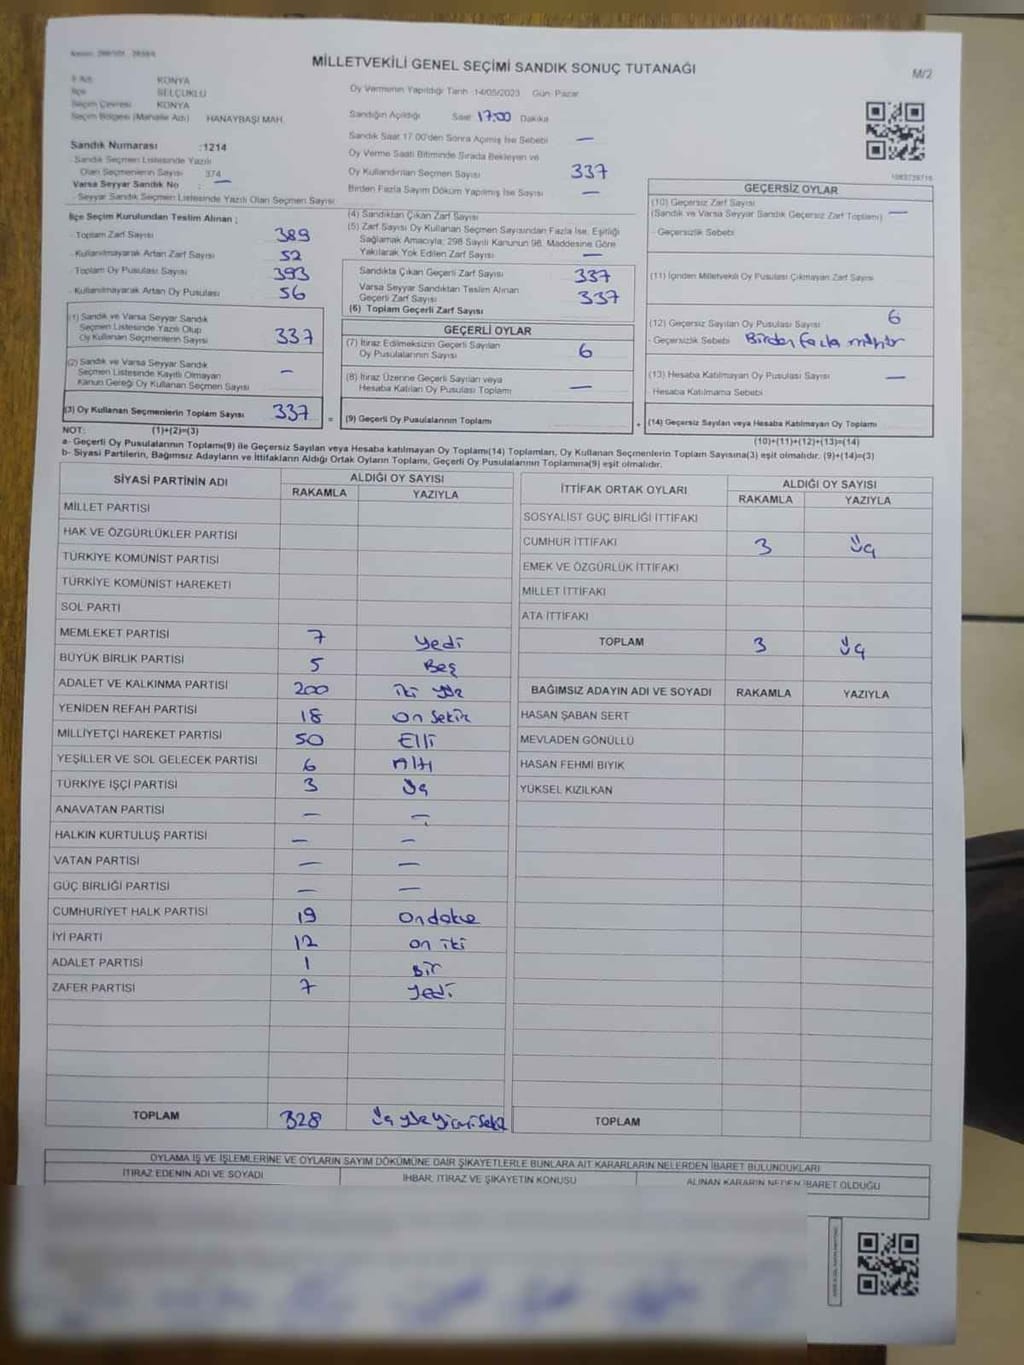 MİLLETVEKİLİ GENEL SEÇİMİ SANDIK SONUÇ TUTANAĞI
M/2
KONYA
İlçe SELÇUKLU
Seçim Çevresi KONYA
Seçim Bölgesi (Mahalle Adı) HANAYBAŞI MAH.
Sandık Numarası :1214
- Sandık Seçmen Listesinde Yazılı
Olan Seçmenlerin Sayısı 374
Varsa Seyyar Sandık No : —
- Seyyar Sandık Seçmen Listesinde Yazılı Olan Seçmen Sayısı
Oy Vermenin Yapıldığı Tarih :14/05/2023 Gün: Pazar
Sandığın Açıldığı Saat 17:00 Dakika
Sandık Saat 17.00'den Sonra Açılmış İse Sebebi —
Oy Verme Saati Bitiminde Sırada Bekleyen ve
Oy Kullandırılan Seçmen Sayısı 337
Birden Fazla Sayım Döküm Yapılmış İse Sayısı —
İlçe Seçim Kurulundan Teslim Alınan :
- Toplam Zarf Sayısı 389
- Kullanılmayarak Artan Zarf Sayısı 52
- Toplam Oy Pusulası Sayısı 393
- Kullanılmayarak Artan Oy Pusulası 56
(1) Sandık ve Varsa Seyyar Sandık
Seçmen Listesinde Yazılı Olup
Oy Kullanan Seçmenlerin Sayısı 337
(2) Sandık ve Varsa Seyyar Sandık
Seçmen Listesinde Kayıtlı Olmayan
Kanun Gereği Oy Kullanan Seçmen Sayısı —
(3) Oy Kullanan Seçmenlerin Toplam Sayısı 337 =
NOT: (1)+(2)=(3)
(4) Sandıktan Çıkan Zarf Sayısı
(5) Zarf Sayısı Oy Kullanan Seçmen Sayısından Fazla İse, Eşitliği
Sağlamak Amacıyla; 298 Sayılı Kanunun 98. Maddesine Göre
Yakılarak Yok Edilen Zarf Sayısı —
Sandıkta Çıkan Geçerli Zarf Sayısı 337
Varsa Seyyar Sandıktan Teslim Alınan
Geçerli Zarf Sayısı 337
(6) Toplam Geçerli Zarf Sayısı
GEÇERLİ OYLAR
(7) İtiraz Edilmeksizin Geçerli Sayılan
Oy Pusulalarının Sayısı 6
(8) İtiraz Üzerine Geçerli Sayılan veya
Hesaba Katılan Oy Pusulası Toplamı —
(9) Geçerli Oy Pusulalarının Toplamı +
GEÇERSİZ OYLAR
(10) Geçersiz Zarf Sayısı
(Sandık ve Varsa Seyyar Sandık Geçersiz Zarf Toplamı) —
- Geçersizlik Sebebi
(11) İçinden Milletvekili Oy Pusulası Çıkmayan Zarf Sayısı
(12) Geçersiz Sayılan Oy Pusulası Sayısı 6
- Geçersizlik Sebebi Birden fazla mühür
(13) Hesaba Katılmayan Oy Pusulası Sayısı —
- Hesaba Katılmama Sebebi
(14) Geçersiz Sayılan veya Hesaba Katılmayan Oy Toplamı
(10)+(11)+(12)+(13)=(14)
a- Geçerli Oy Pusulalarının Toplamı(9) ile Geçersiz Sayılan veya Hesaba katılmayan Oy Toplamı(14) Toplamları, Oy Kullanan Seçmenlerin Toplam Sayısına(3) eşit olmalıdır. (9)+(14)=(3)
b- Siyasi Partilerin, Bağımsız Adayların ve İttifakların Aldığı Ortak Oyların Toplamı, Geçerli Oy Pusulalarının Toplamına(9) eşit olmalıdır.
SİYASİ PARTİNİN ADI ALDIĞI OY SAYISI
RAKAMLA YAZIYLA
MİLLET PARTİSİ
HAK VE ÖZGÜRLÜKLER PARTİSİ
TÜRKİYE KOMÜNİST PARTİSİ
TÜRKİYE KOMÜNİST HAREKETİ
SOL PARTİ
MEMLEKET PARTİSİ 7 Yedi
BÜYÜK BİRLİK PARTİSİ 5 Beş
ADALET VE KALKINMA PARTİSİ 200 iki yüz
YENİDEN REFAH PARTİSİ 18 On sekiz
MİLLİYETÇİ HAREKET PARTİSİ 50 Elli
YEŞİLLER VE SOL GELECEK PARTİSİ 6 Altı
TÜRKİYE İŞÇİ PARTİSİ 3 Üç
ANAVATAN PARTİSİ — —
HALKIN KURTULUŞ PARTİSİ — —
VATAN PARTİSİ — —
GÜÇ BİRLİĞİ PARTİSİ — —
CUMHURİYET HALK PARTİSİ 19
İYİ PARTİ 12 on iki
ADALET PARTİSİ 1 Bir
ZAFER PARTİSİ 7 Yedi
TOPLAM 328
İTTİFAK ORTAK OYLARI ALDIĞI OY SAYISI
RAKAMLA YAZIYLA
SOSYALİST GÜÇ BİRLİĞİ İTTİFAKI
CUMHUR İTTİFAKI 3 Üç
EMEK VE ÖZGÜRLÜK İTTİFAKI
MİLLET İTTİFAKI
ATA İTTİFAKI
TOPLAM 3 Üç
BAĞIMSIZ ADAYIN ADI VE SOYADI RAKAMLA YAZIYLA
HASAN ŞABAN SERT
MEVLADEN GÖNÜLLÜ
HASAN FEHMİ BIYIK
YÜKSEL KIZILKAN
TOPLAM
OYLAMA İŞ VE İŞLEMLERİNE VE OYLARIN SAYIM DÖKÜMÜNE DAİR ŞİKAYETLERLE BUNLARA AİT KARARLARIN NELERDEN İBARET BULUNDUKLARI
İTİRAZ EDENİN ADI VE SOYADI İHBAR, İTİRAZ VE ŞİKAYETİN KONUSU ALINAN KARARIN NEDEN İBARET OLDUĞU